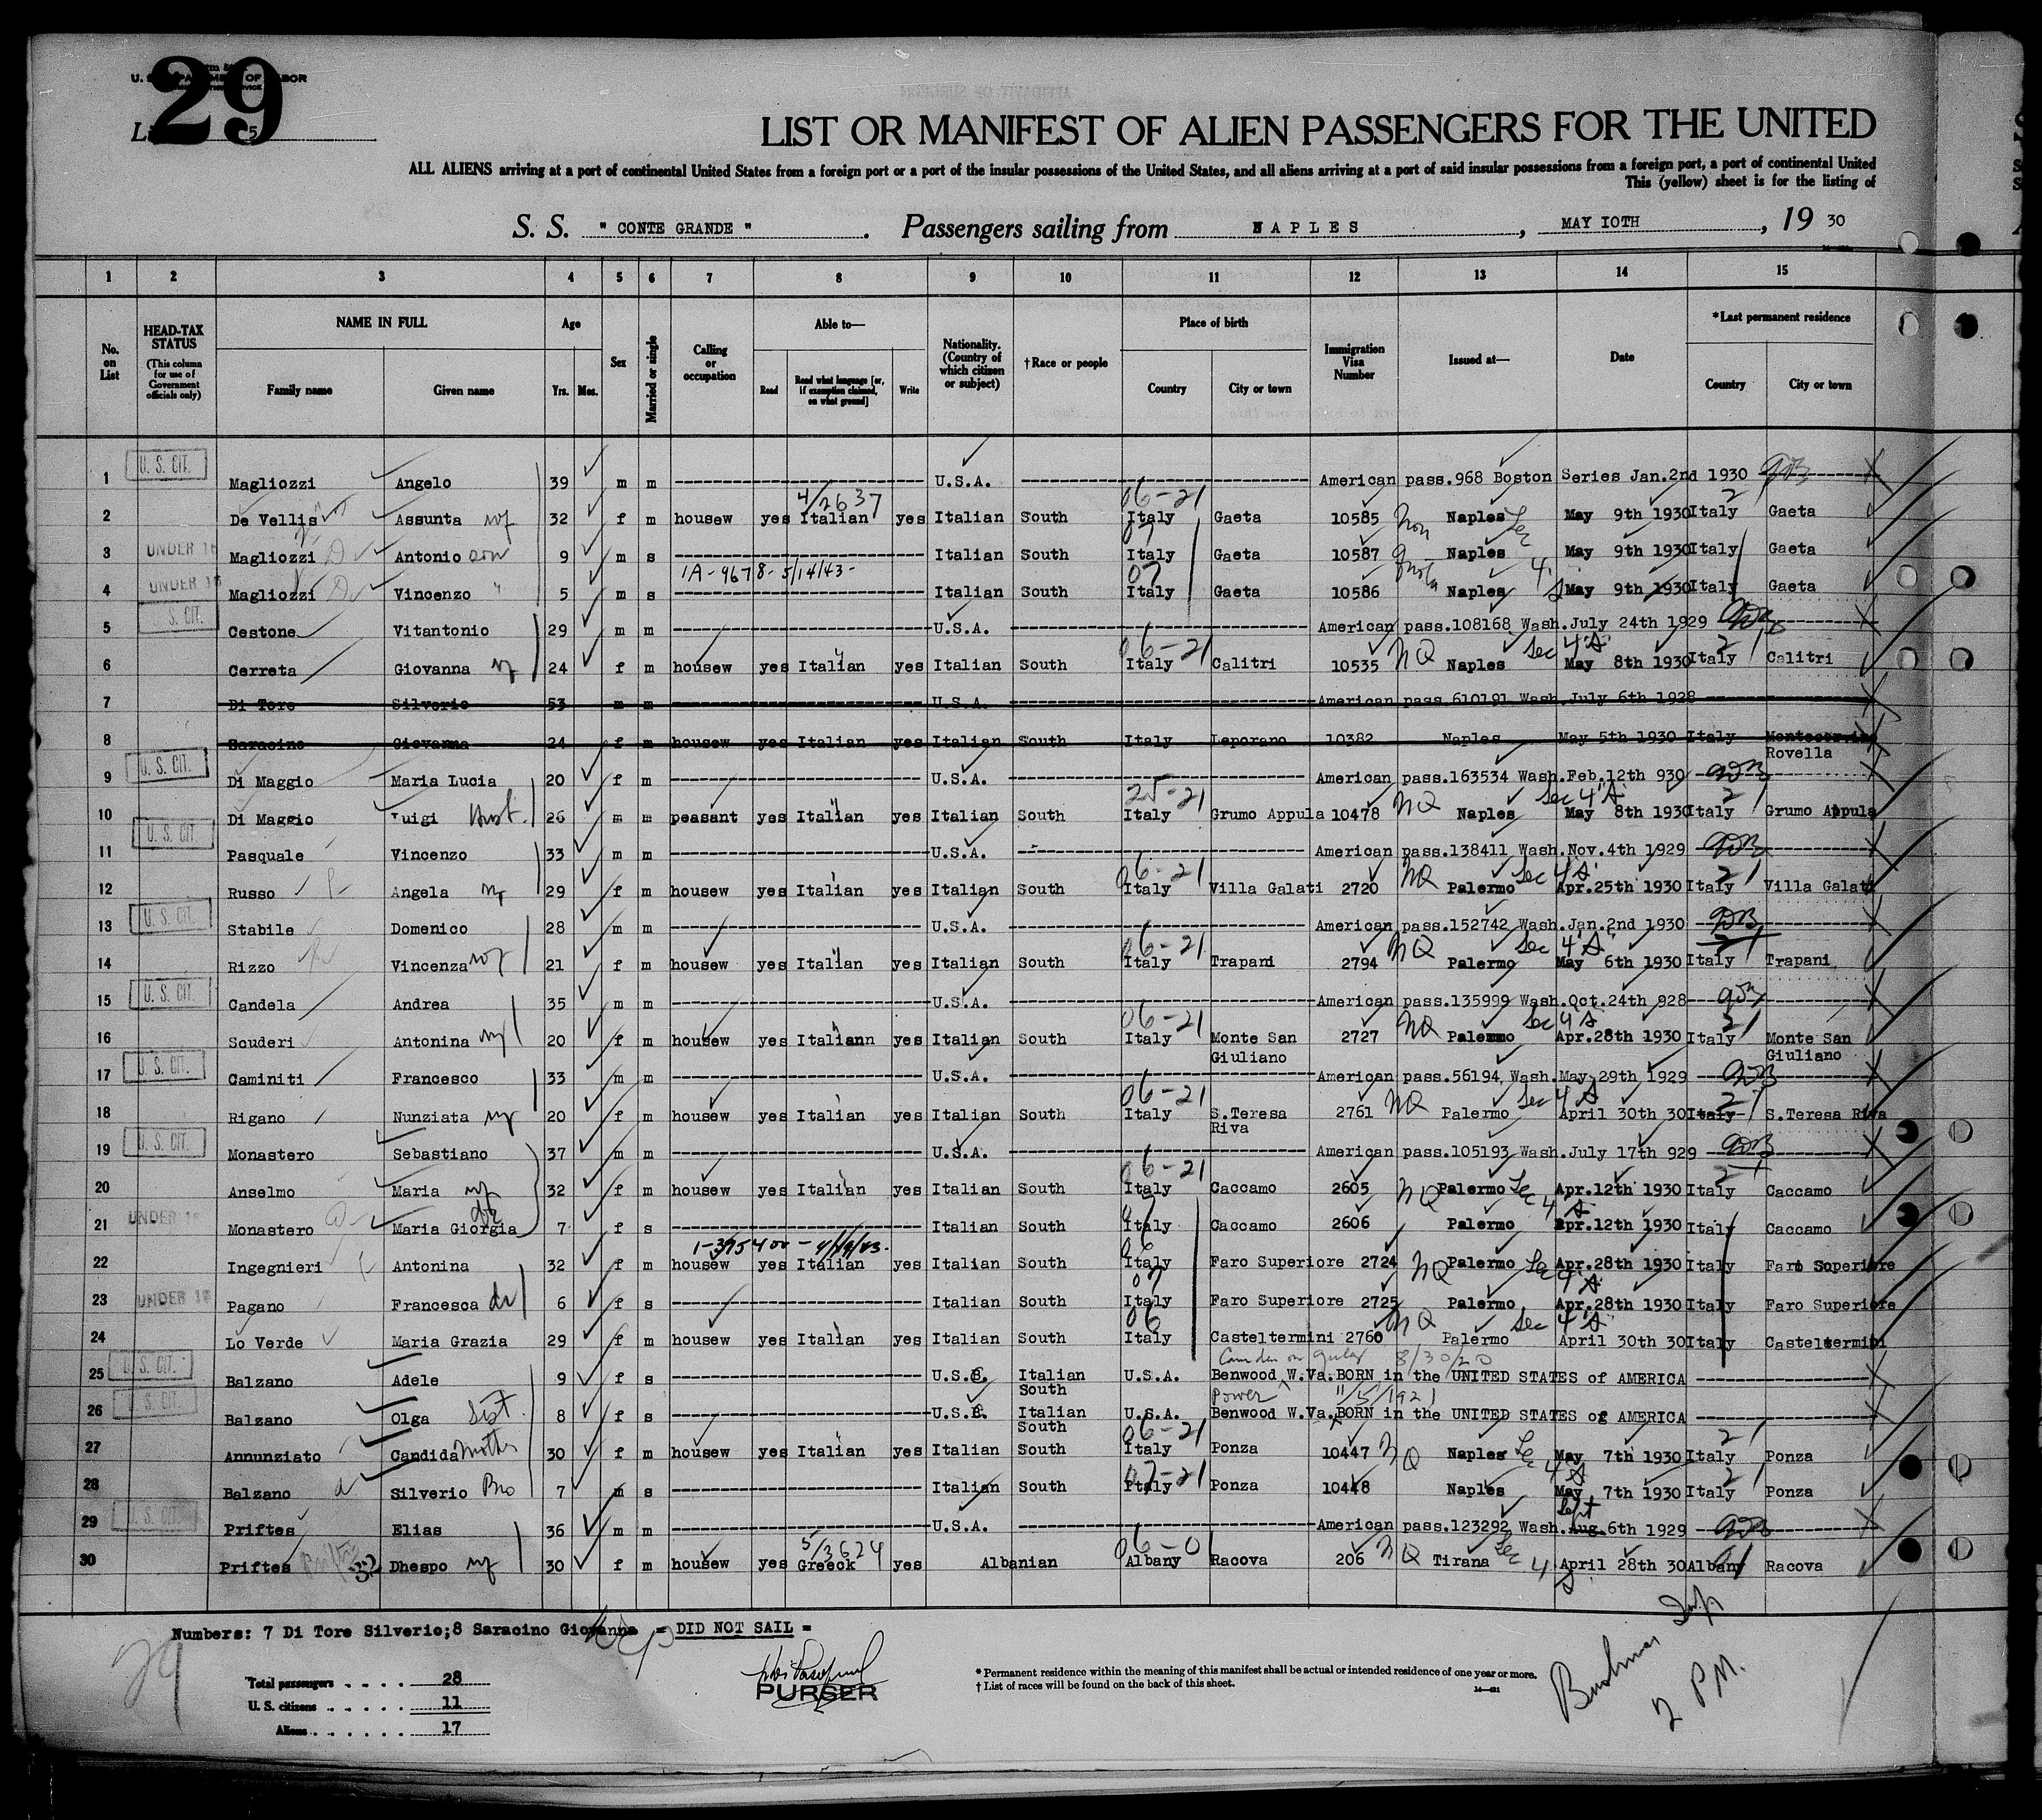 29
LIST OR MANIFEST OF ALIEN PASSENGERS FOR THE UNITED
ALL ALIENS arriving at a port of continental United States from a foreign port or a port of the insular possessions of the United States, and all aliens arriving at a port of said insular possessions from a foreign port, a port of continental United
This (yellow) sheet is for the listing of
S. S. " CONTE GRANDE " . Passengers sailing from NAPLES , MAY 10TH , 19 30
1 2 3 4 5 6 7 8 9 10 11 12 13 14 15
No. on List HEAD-TAX STATUS (This column for use of Government officials only) NAME IN FULL Family name Given name Age Yrs. Mos. Sex Married or single Calling or occupation Able to— Read Read what language [or, if exemption claimed, on what ground] Write Nationality. (Country of which citizen or subject) †Race or people Place of birth Country City or town Immigration Visa Number Issued at— Date *Last permanent residence Country City or town
1 U. S. CIT. Magliozzi Angelo 39 m m U.S.A. American pass.968 Boston Series Jan.2nd 1930
2 De Vellis Assunta wf 32 f m housew yes Italian yes Italian South Italy Gaeta 10585 Naples May 9th 1930 Italy Gaeta
3 UNDER 16 Magliozzi Antonio son 9 m s Italian South Italy Gaeta 10587 Naples May 9th 1930 Italy Gaeta
4 UNDER 16 Magliozzi Vincenzo " 5 m s Italian South Italy Gaeta 10586 Naples May 9th 1930 Italy Gaeta
5 U. S. CIT. Cestone Vitantonio 29 m m U.S.A. American pass.108168 Wash.July 24th 1929
6 Cerreta Giovanna wf 24 f m housew yes Italian yes Italian South Italy 06-21 Calitri 10535 NQ Naples Sec 4 A May 8th 1930 Italy Calitri
7 Di Tore Silverio 53 m m U.S.A. American pass.610191 Wash.July 6th 1928
8 Saracino Giovanna 24 f m housew yes Italian yes Italian South Italy Leporano 10382 Naples May 5th 1930 Italy Montecorvino Rovella
9 U. S. CIT. Di Maggio Maria Lucia 20 f m U.S.A. American pass.163534 Wash.Feb.12th 930
10 Di Maggio Luigi Hust. 26 m m peasant yes Italian yes Italian South Italy 25-21 Grumo Appula 10478 NQ Naples Sec 4 A May 8th 1930 Italy Grumo Appula
11 U. S. CIT. Pasquale Vincenzo 33 m m U.S.A. American pass.138411 Wash.Nov.4th 1929
12 Russo Angela wf 29 f m housew yes Italian yes Italian South Italy 06-21 Villa Galati 2720 NQ Palermo Sec 4 A Apr.25th 1930 Italy Villa Galati
13 U. S. CIT. Stabile Domenico 28 m m U.S.A. American pass.152742 Wash.Jan.2nd 1930
14 Rizzo Vincenza wf 21 f m housew yes Italian yes Italian South Italy 06-21 Trapani 2794 NQ Palermo Sec 4 A May 6th 1930 Italy Trapani
15 U. S. CIT. Candela Andrea 35 m m U.S.A. American pass.135999 Wash.Oct.24th 928
16 Scuderi Antonina wf 20 f m housew yes Italiann yes Italian South Italy 06-21 Monte San Giuliano 2727 NQ Palermo Sec 4 A Apr.28th 1930 Italy Monte San Giuliano
17 U. S. CIT. Caminiti Francesco 33 m m U.S.A. American pass.56194 Wash.May 29th 1929
18 Rigano Nunziata wf 20 f m housew yes Italian yes Italian South Italy 06-21 S.Teresa Riva 2761 NQ Palermo Sec 4 A April 30th 30 Italy S.Teresa Riva
19 U. S. CIT. Monastero Sebastiano 37 m m U.S.A. American pass.105193 Wash.July 17th 929
20 Anselmo Maria wf 32 f m housew yes Italian yes Italian South Italy 06-21 Caccamo 2605 NQ Palermo Sec 4 A Apr.12th 1930 Italy Caccamo
21 UNDER 16 Monastero Maria Giorgia 7 f s Italian South Italy Caccamo 2606 Palermo Apr.12th 1930 Italy Caccamo
22 Ingegnieri Antonina 32 f m housew yes Italian yes Italian South Italy 06 Faro Superiore 2724 NQ Palermo Apr.28th 1930 Italy Faro Superiore
23 UNDER 16 Pagano Francesca 6 f s Italian South Italy 07 Faro Superiore 2725 Palermo Apr.28th 1930 Italy Faro Superiore
24 Lo Verde Maria Grazia 29 f m housew yes Italian yes Italian South Italy 06 Casteltermini 2760 NQ Palermo Sec 4 A April 30th 30 Italy Casteltermini
25 U. S. CIT. Balzano Adele 9 f s U.S.A. Italian South U.S.A. Benwood W.Va. BORN in the UNITED STATES of AMERICA 8/30/20
26 U. S. CIT. Balzano Olga Sist. 8 f s U.S.A. Italian South U.S.A. Benwood W.Va. BORN in the UNITED STATES of AMERICA 11/5/1921
27 Annunziato Candida Mother 30 f m housew yes Italian yes Italian South Italy 06-21 Ponza 10447 NQ Naples May 7th 1930 Italy Ponza
28 Balzano Silverio Bro 7 m s Italian South Italy 07-21 Ponza 10448 Naples May 7th 1930 Italy Ponza
29 U. S. CIT. Priftes Elias 36 m m U.S.A. American pass.123292 Wash. Aug. Sept 6th 1929
30 Priftes Dhespo wf 30 f m housew yes Greeck yes Albanian Albany 06-01 Racova 206 NQ Tirana Sec 4 A April 28th 30 Albany Racova
Numbers: 7 Di Tore Silverio;8 Saracino Giovanna = DID NOT SAIL =
Total passengers 28
U. S. citizens 11
Aliens 17
PURSER
* Permanent residence within the meaning of this manifest shall be actual or intended residence of one year or more.
† List of races will be found on the back of this sheet.
2 P.M.